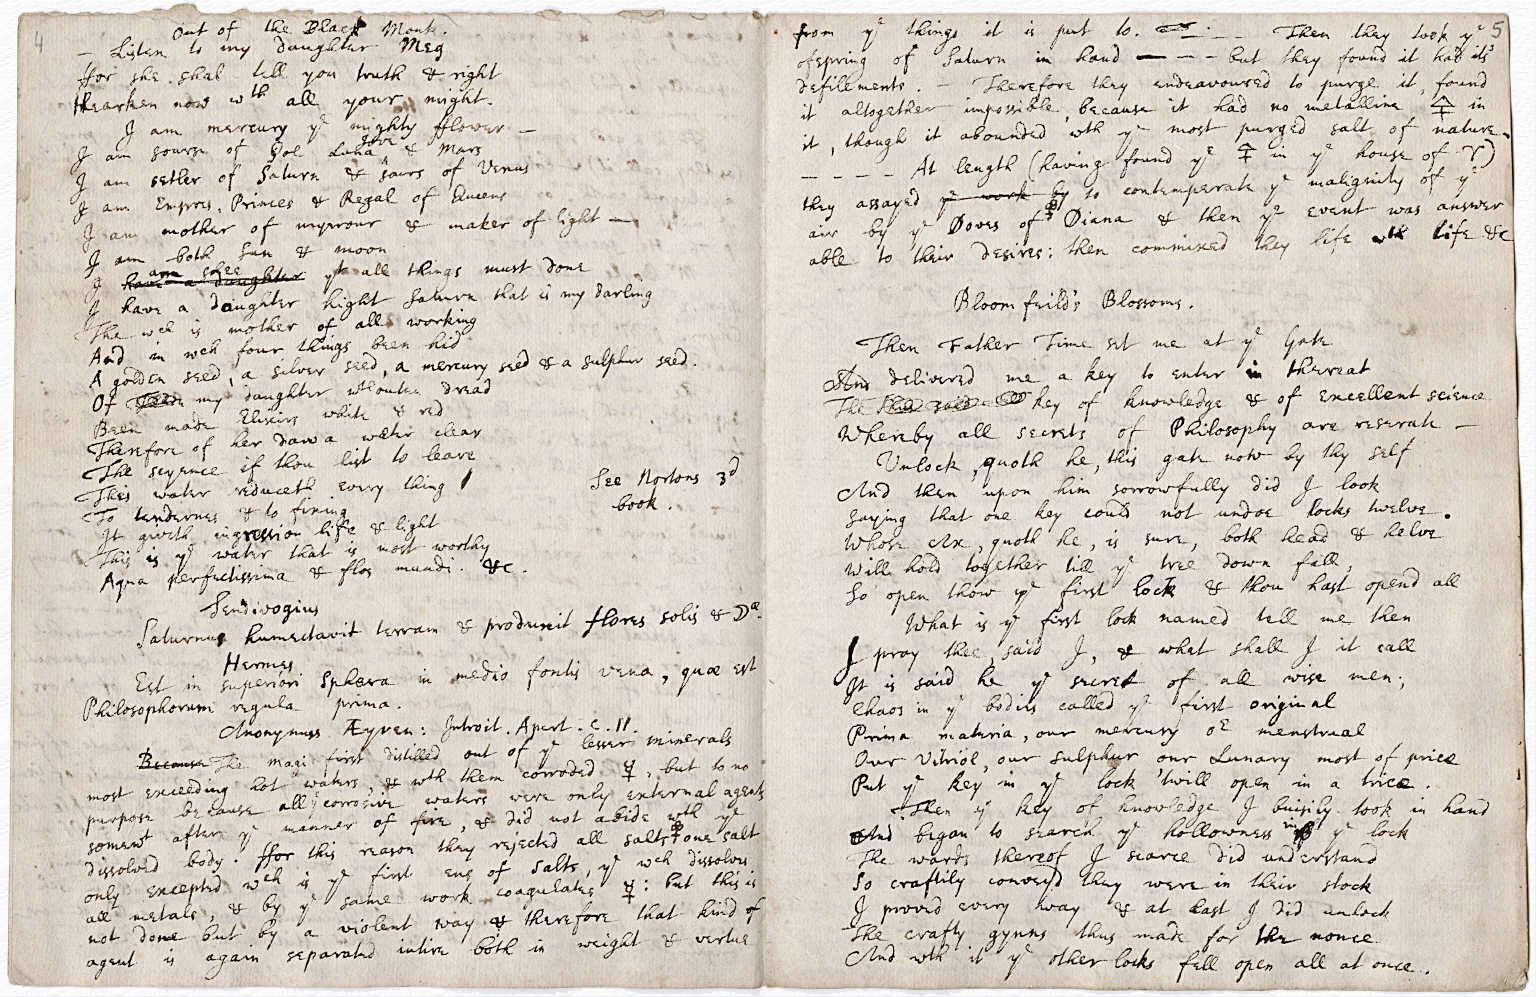 4
Out of the Black Monk.
— Listen to my daughter Meg
ffor she shal tell you truth & right
Hearken now wth all your might.
I am mercury ye mighty fflower —
I am sourse of Sol Luna Jove & Mars
I am setler of Saturn & sours of Venus
I am Empres, Princes & Regal of Queens
I am mother of myrrour & maker of light —
I am both Sun & moon
I have a daughter am shee yt all things must done
I have a daughter hight Saturn that is my darling
The wch is mother of all working
And in wch four things been hid
A golden seed, a silver seed, a mercury seed & a sulphur seed.
Of my daughter wthouten dread
Been made Elixirs white & red
Therefore of her draw a water clear
The scyence if thou list to leare
This water reduceth every thing
See Nortons 3d
book.
To tendernes & to fixing
It giveth ingression life & light
This is ye water that is most worthy
Aqua perfectissima & flos mundi. &c.
Sendivogius
Saturnus humectavit terram & produxit flores solis & ☽æ.
Hermes
Est in superiori Sphæra in medio fontis vena, quæ est
Philosophorum regula prima.
Anonymus Æyren: Introit. Apert. c. 11.
Because The magi first distilled out of ye lesser minerals
most exceeding hot waters, & wth them corroded ☿, but to no
purpose because all ye corrosive waters were only external agents
somewt after ye manner of fire, & did not abide wth ye
dissolved body. ffor this reason they rejected all salts one salt
only excepted wch is ye first ens of Salts, ye wch dissolves
all metals, & by ye same work coagulates ☿: but this is
not done but by a violent way & therefore that kind of
agent is again separated intire both in weight & vertue
5
from ye things it is put to. — — Then they took ye
ofspring of Saturn in hand — — — but they found it had its
defilements. — Therefore they endeavoured to purge it, found
it altogether impossible, because it had no metalline 🜍 in
it, though it abounded wth ye most purged salt of nature.
— — — — At length (having found ye 🜍 in ye house of ♈)
they assayed ye work by to contemperate ye malignity of ye
air by ye Doves of Diana & then ye event was answer
able to their desires: then commixed they life wth life &c
Bloomfeild's Blossoms.
Then Father Time set me at ye Gate
And delivered me a key to enter in thereat
The key of knowledge & of excellent science
Whereby all secrets of Philosophy are reserate —
Unlock, quoth he, this gate now by thy self
And then upon him sorrowfully did I look
Saying that one key could not undoe locks twelve.
Whose Ax, quoth he, is sure, both head & helve
Will hold together till ye tree down fall,
So open thow ye first lock & thou hast opend all
What is ye first lock named tell me then
I pray thee, said I, & what shall I it call
It is said he ye secret of all wise men;
Chaos in ye bodies called ye first original
Prima materia, our mercury or menstrual
Our Vitriol, our sulphur our Lunary most of price
Put ye key in ye lock 'twill open in a trice.
Then ye key of knowledge I buisily took in hand
And began to search ye hollowness in ye lock
The wards thereof I scarce did understand
So craftily conveyd they were in their stock
I proved every way & at last I did unlock
The crafty gynns thus made for the nonce
And wth it ye other locks fell open all at once.